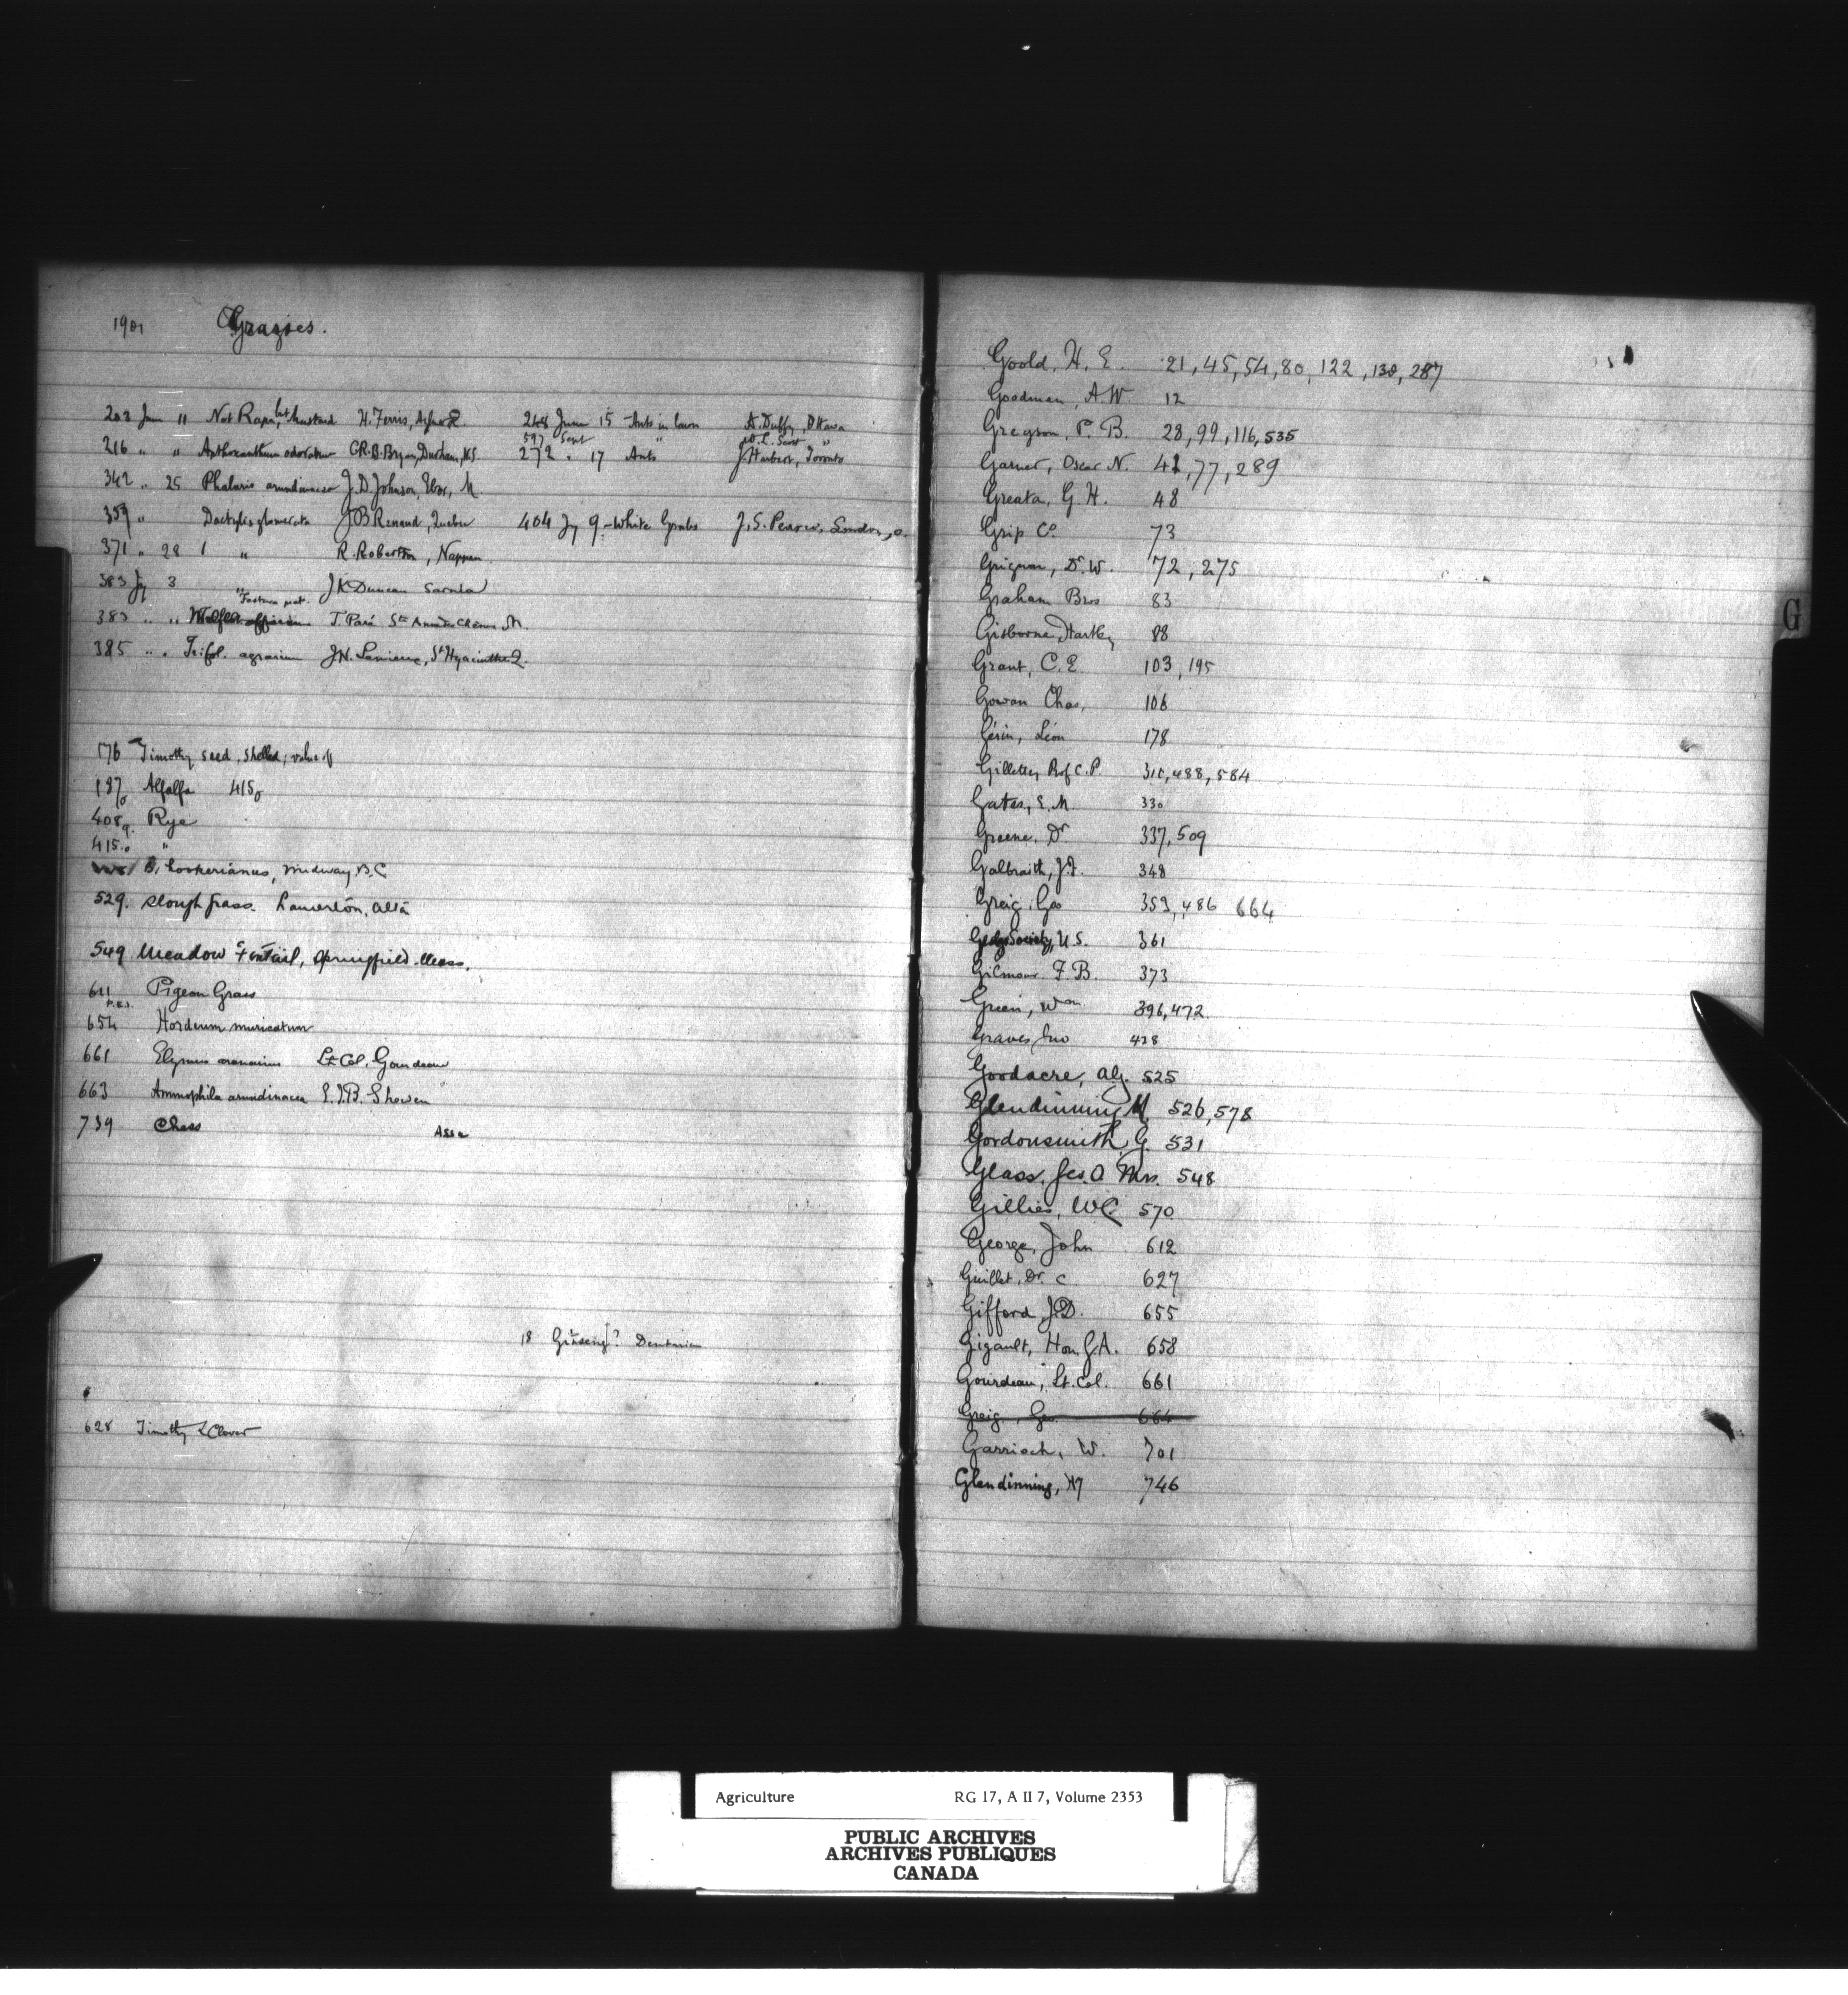 1901 Grasses.
203 June " Not Rape, but Mustard H. Ferris,
216 " " Anthoxanthum odoratum C.R.B. Bryan, Durham, N.S.
342 " 25 Phalaris arundinacea J.D. Johnson, Ebor, M.
359 " Dactylis glomerata J.B. Renaud, Quebec
371 " 28 " R. Robertson, Nappan
383 Jy 3 " J.K. Duncan
383 " " T. Paré
385 " " Trifol. agrarium J.N. St Hyacinthe Q.
248 June 15 - Ants in lawn A. Duffy, Ottawa
597 Sept " Scott "
272 " 17 Ants J. Harbert, Toronto
404 Jy 9 - White Grubs J.S. Pearce, London, O.
176 Timothy seed, shelled, value of
187 Alfalfa 415
408 Rye
415 "
B. hookerianus, Midway B.C
529. Slough grass. Lamerton, Alta
549 Meadow Foxtail, Springfield Mass.
611 Pigeon Grass
P.E.I.
654 Hordeum muricatum
661 Elymus arenarius Lt. Col. Gourdeau
663 Ammophila arundinacea E.J.B. Shewen
739 Chess Assa
18 Ginseng? Dentaria
628 Timothy & Clover
Goold, H. E. 21, 45, 54, 80, 122, 138, 287
Goodman, A.W. 12
Gregson, P. B. 28, 99, 116, 535
Garner, Oscar N. 42, 77, 289
Greata, G. H. 48
Grip Co. 73
Grignon, Dr. W. 72, 275
Graham Bros 83
Gisborne, Hartley 88
Grant, C. E 103, 195
Gowan Chas, 106
Gérin, Léon 178
Gillette, Prof C. P. 310, 488, 584
Gates, E. M 330
Greene, Dr 337, 509
Galbraith, J.F. 348
Greig, Geo 353, 486 664
Society, U.S. 361
Gilmour F. B. 373
Green, Wm 396, 472
Graves, Jno 428
Goodacre, Alf. 525
Glendinning H 526, 578
Gordonsmith, G. 531
Glass, Jas. O Mrs. 548
Gillies, W.C. 570
George, John 612
Guillet, Dr. C 627
Gifford J.D. 655
Gigault, Hon. G.A. 658
Gourdeau, Lt. Col. 661
Greig, Geo. 664
Garrioch, W. 701
Glendinning, Hy 746
G
Agriculture RG 17, A II 7, Volume 2353
PUBLIC ARCHIVES
ARCHIVES PUBLIQUES
CANADA